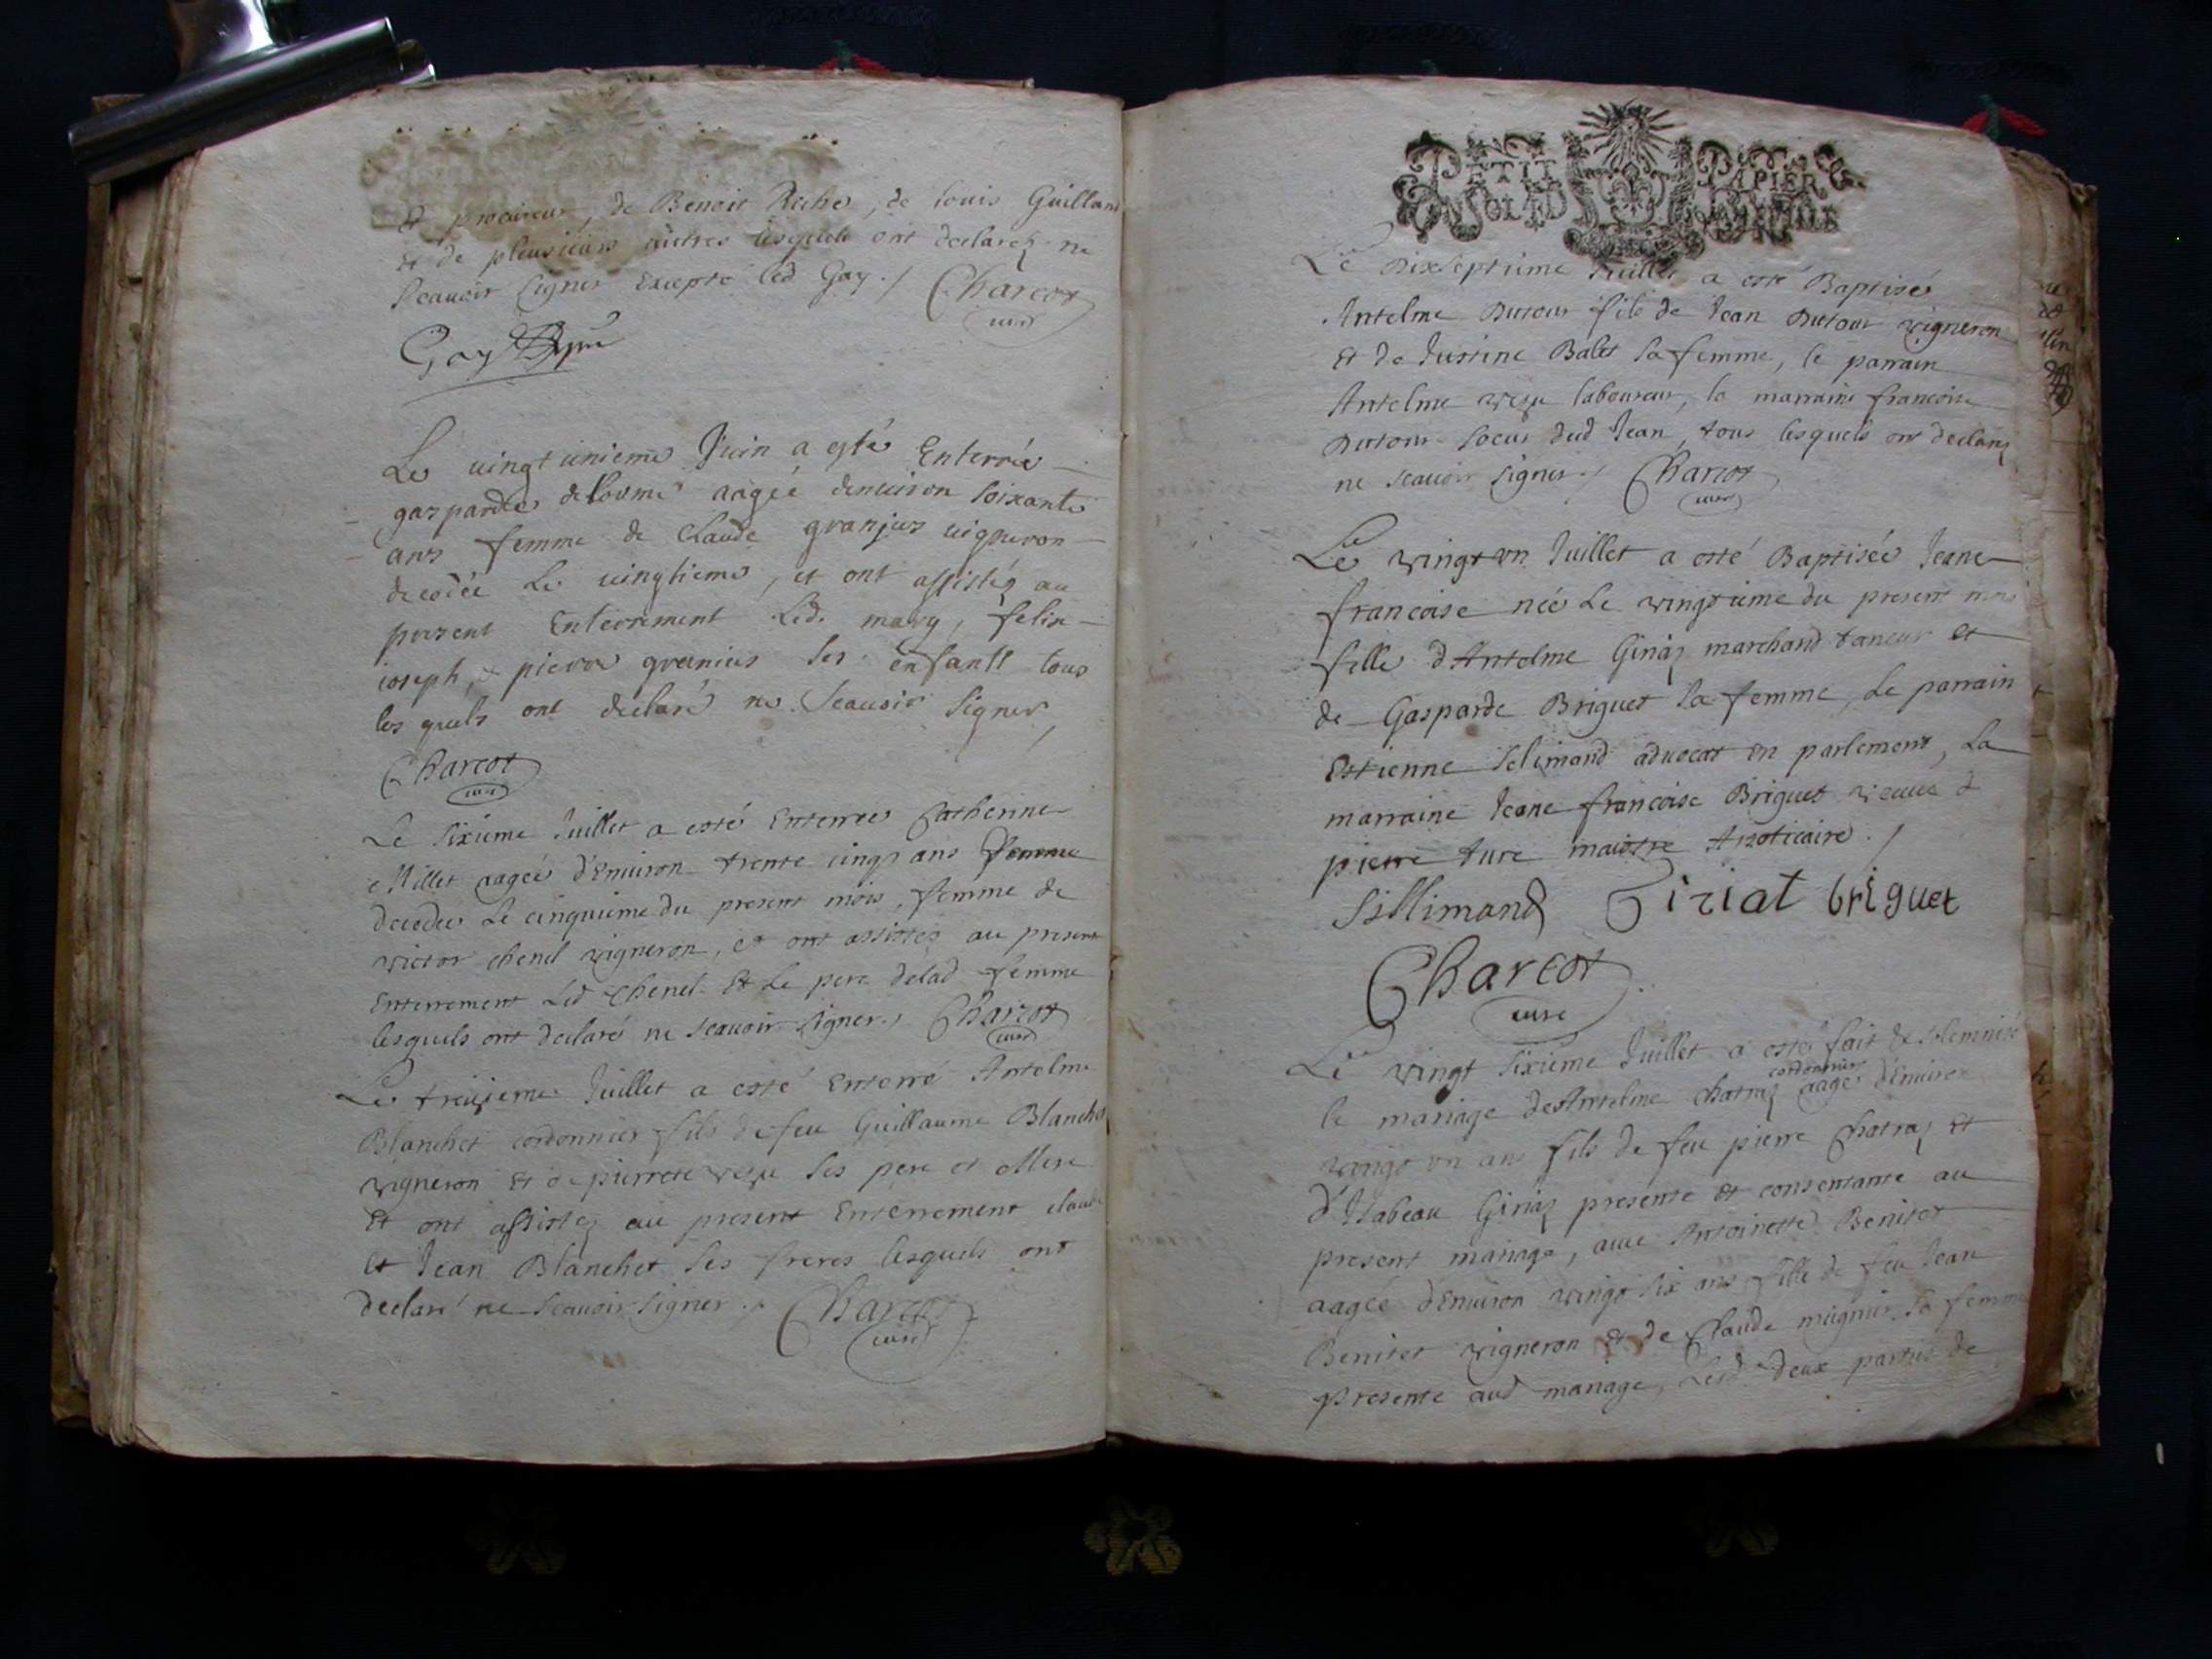 et procureur, de Benoit Riche, de Louis Guillans
et de pleusieurs autres lesquels ont declarez ne
scauoir signer excepté led Gay ./ Charcot
curé
Gay
Le uingt unieme Juin a esté Enterrée
gasparde delorme aagée denuiron soixante
ans femme de Claude granjus uigneron
decedée Le uingtieme, et ont assistéz au
present Enterrement Led. mary, felix
ioseph, & pierre granius ses enfants tous
les quels ont declaré ne Scauoir signer /
Charcot
curé
Le sixieme Juillet a esté Enterrée Catherine
Millet aagée d'Enuiron trente cinq ans
decedée Le cinquieme du present mois, femme de
victor chenel vigneron, et ont assistéz au present
Enterrement Led chenel Et Le pere delad femme
lesquels ont declaré ne scauoir signer ./ Charcot
curé
Le treizieme Juillet a esté Enterré Antelme
Blanchet cordonnier fils de feu Guillaume Blanchet
vigneron Et de pierrete veze ses pere et Mere
Et ont assistez au present Enterrement claude
Et Jean Blanchet ses freres lesquels ont
declaré ne scauoir signer ./ Charcot
curé
PETIT PAPIER
Le Dixseptieme Juillet a esté Baptisé
Antelme Dutour fils de Jean Dutour vigneron
Et de Justine Balet sa femme, le parrain
Antelme veze laboureur, la marraine francoise
Dutour soeur dud Jean, tous lesquels ont declarez
ne scauoir signer ./ Charcot
curé
Le vingt vn Juillet a esté Baptisée Jeane
francoise née Le vingtieme du present mois
fille d'Antelme Ginaz marchand taneur et
de Gasparde Briguet sa femme, Le parrain
Estienne Selimand aduocat en parlement, La
marraine Jeane francoise Briguet veuue d
pierre ture maistre Apoticaire ./
Sillimand Giriat briguet
Charcot
curé
Le vingt sixieme Juillet a esté fait & solemnisé
cordonnier
le mariage de Antelme Chatraz aagé d'Enuiron
vingt vn ans fils de feu pierre Chatraz et
d'Isabeau Ginaz presente et consentante au
present mariage, auec Antoinette Benitet
aagée d'Enuiron vingt six ans fille de feu Jean
Benitet vigneron et de Claude mugnier sa femme
presente aud mariage, Lesd deux parties de